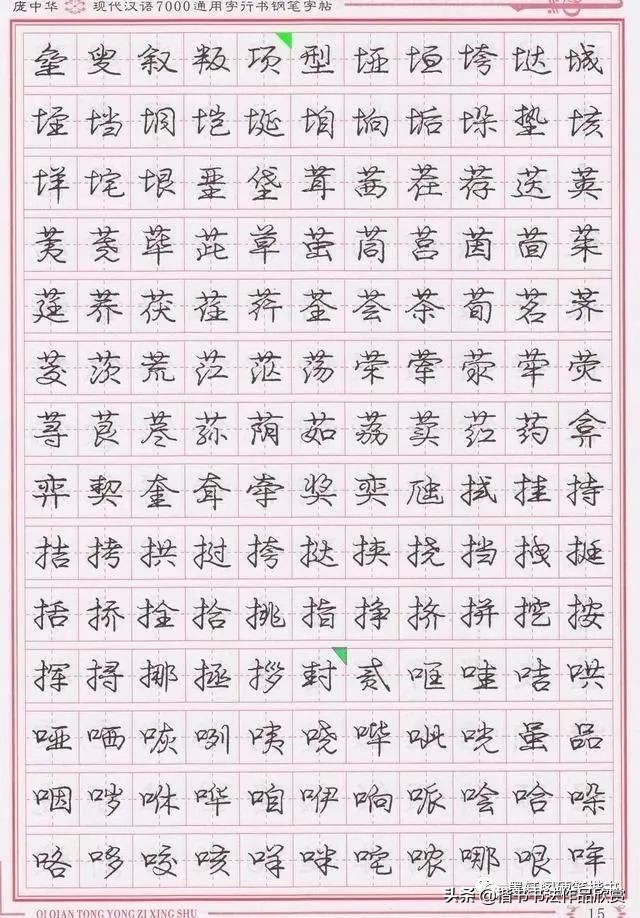 庞中华 现代汉语7000通用字行书钢笔字帖
垒叟叙叛项型垭垣垮垯城
垤垱垌垲埏垍垧垢垛垫垓
垟垞垠垩垡茸茜茬荐荙荚
荑荛荜茈草茧茼莒茵茴茱
莛荞茯荏荇荃荟茶荀茗荠
茭茨荒茳茫荡荣荤荥荦荧
荨茛荩荪荫茹荔荬荭药弇
弈契奎耷牵奖奕虺拭挂持
拮拷拱挝挎挞挟挠挡拽挺
括挢拴拾挑指挣挤拼挖按
挥挦挪拯拶封贰哐哇咭哄
哑哂咴咧咦哓哔呲咣虽品
咽哕咻哗咱咿响哌哙哈哚
咯哆咬咳咩咪咤哝哪哏哞
头条@楷书书法作品欣赏
QI QIAN TONG YONG ZI XING SHU 15